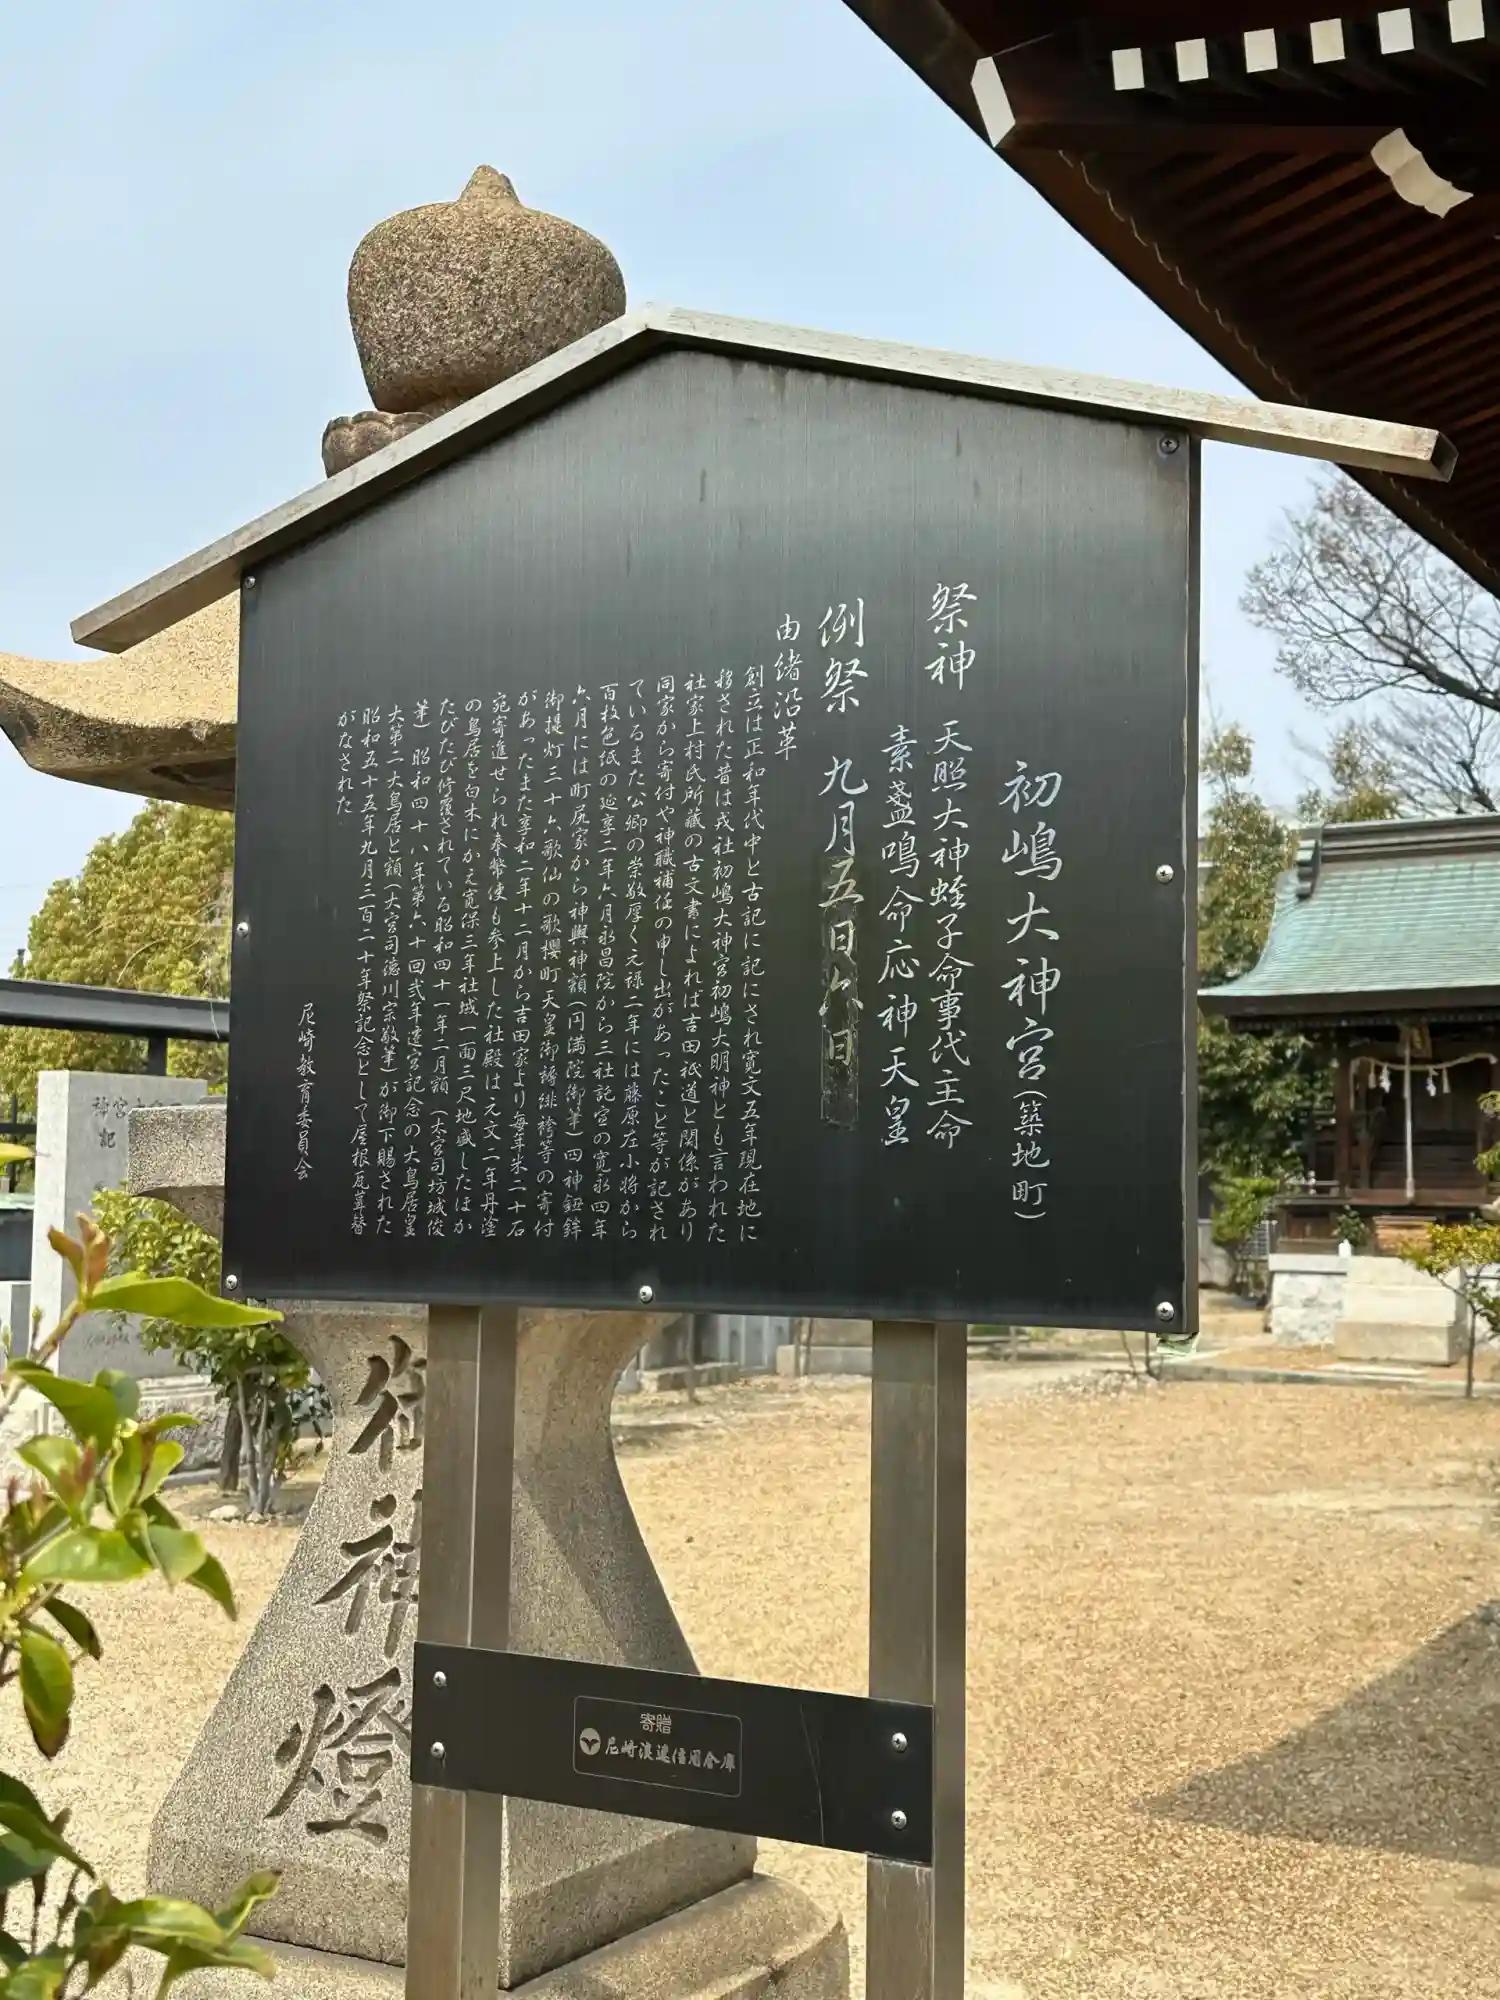 初嶋大神宮(築地町)
祭神 天照大神蛭子命事代主命
素盞鳴命応神天皇
例祭 九月五日六日
由緒沿革
創立は正和年代中と古記に記にされ寛文五年現在地に
移された昔は戎社初嶋大神宮初嶋大明神とも言われた
社家上村氏所蔵の古文書によれば吉田祇道と関係があり
同家から寄付や神職補任の申し出があったこと等が記され
ているまた公卿の崇敬厚く元禄二年には藤原左小将から
百枚色紙の延享二年六月永昌院から三社託宣の寛永四年
六月には町尻家から神輿神額(円満院御筆)四神鈕鉾
御提灯三十六歌仙の歌櫻町天皇御鋳緋袴等の寄付
があったまた享和二年十二月から吉田家より毎年米二十石
宛寄進せられ奉幣使も参上した社殿は元文二年丹塗
の鳥居を白木にかえ寛保三年社域一面三尺地盛したほか
たびたび修覆されている昭和四十一年二月額(大宮司坊城俊
筆)昭和四十八年第六十回弐年遷宮記念の大鳥居皇
大第二大鳥居と額(大宮司徳川宗敬筆)が御下賜された
昭和五十五年九月三百二十年祭記念として屋根瓦葺替
がなされた
尼崎教育委員会
御神燈
寄贈
尼崎浪速信用金庫